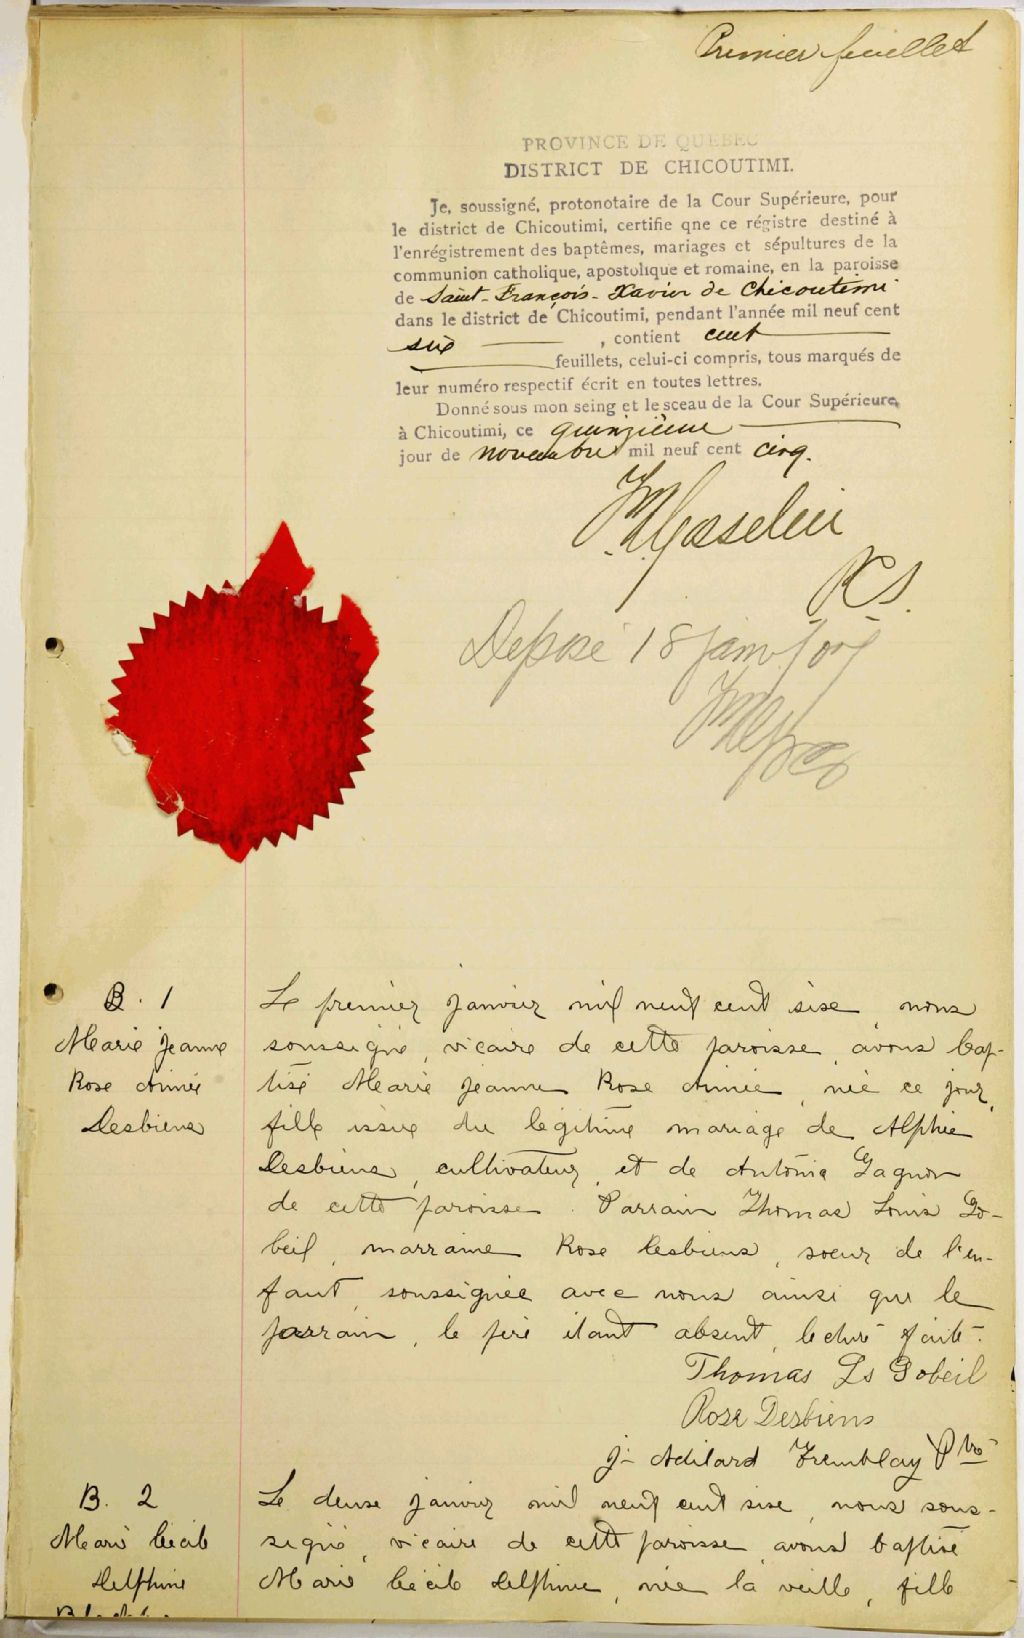 Premier feuillet
PROVINCE DE QUEBEC
DISTRICT DE CHICOUTIMI.
Je, soussigné, protonotaire de la Cour Supérieure, pour
le district de Chicoutimi, certifie qne ce régistre destiné à
l'enrégistrement des baptêmes, mariages et sépultures de la
communion catholique, apostolique et romaine, en la paroisse
de Saint-François-Xavier de Chicoutimi
dans le district de Chicoutimi, pendant l'année mil neuf cent
six , contient cent
feuillets, celui-ci compris, tous marqués de
leur numéro respectif écrit en toutes lettres.
Donné sous mon seing et le sceau de la Cour Supérieure,
à Chicoutimi, ce quinzième
jour de novembre mil neuf cent cinq.
Gosselin
Déposé 18 janv
B. 1
Marie Jeanne
Rose Aimée
Desbiens
Le premier janvier mil neuf cent sise, nous
soussigné, vicaire de cette paroisse, avons bap-
tisé Marie Jeanne Rose Aimée, née ce jour,
fille issue du légitime mariage de Alphée
Desbiens, cultivateur, et de Antonia Gagnon
de cette paroisse. Parrain Thomas Louis Go-
beil, marraine Rose Desbiens, soeur de l'en-
fant, soussignée avec nous ainsi que le
parrain, le père étant absent, lecture faite.
Thomas Ls Gobeil
Rose Desbiens
J. Adélard Tremblay Ptre
B. 2
Marie Cécile
Delphine
Le deuse janvier mil neuf cent sise, nous sous-
signé, vicaire de cette paroisse, avons baptisé
Marie Cécile Delphine, née la veille, fille